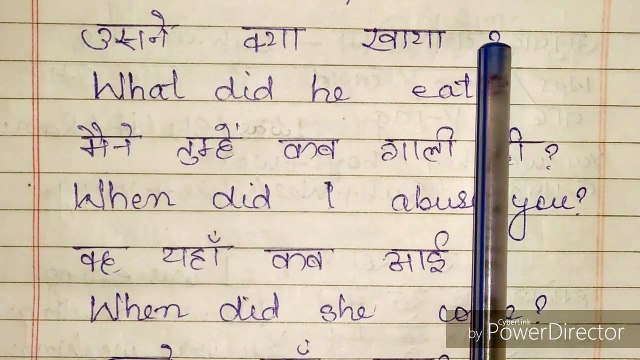 उसने क्या खाया ?
What did he eat
मैने तुम्हें कब गाली दी?
When did I abuse you?
वह यहाँ कब आई
When did she come?
by CyberLink PowerDirector